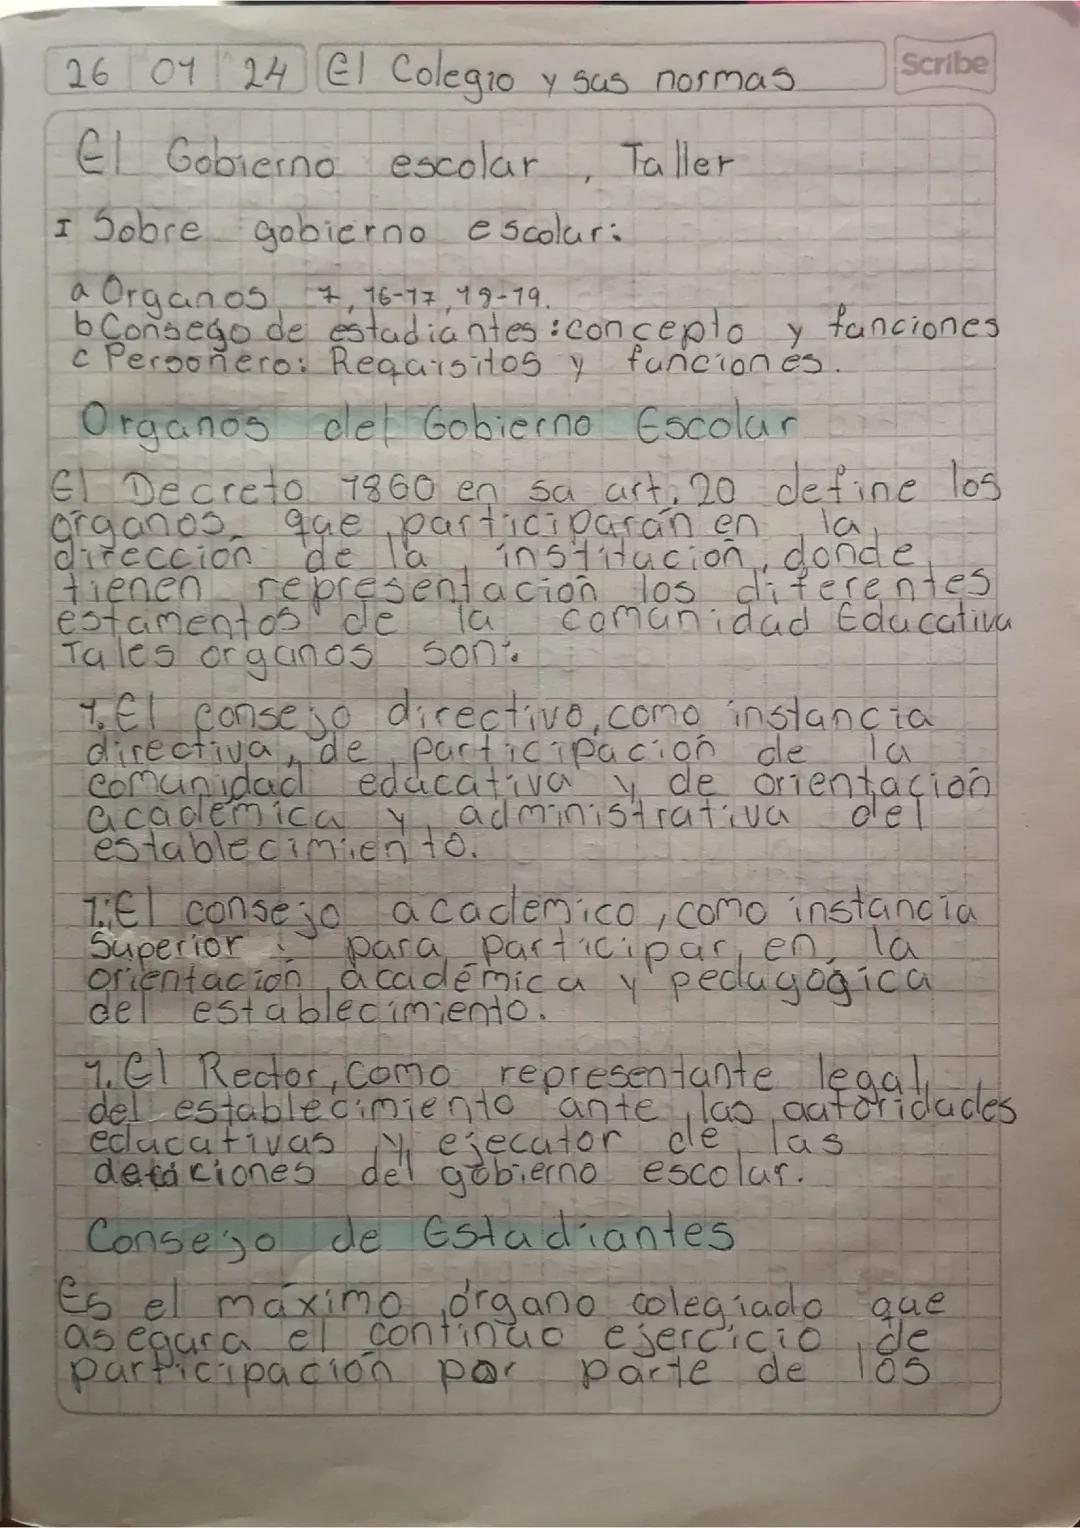 26 01 24 El Colegio y sus normas Scribe
El Gobierno escolar, Taller
I Sobre gobierno escolar:
a Organos 7, 16-17, 19-19.
b Consego de estudiantes: concepto y funciones
c Personero: Requisitos y funciones.
Organos del Gobierno Escolar
El Decreto 1860 en su art. 20 define los
órganos que participarán en la
dirección de la institución, donde
tienen representación los diferentes
estamentos de la comunidad Educativa
Tales organos son:
1. El consejo directivo, como instancia
directiva, de participación de la
comunidad educativa y de orientación
académica y administrativa del
establecimiento.
1. El consejo academico, como instancia
Superior para participar en la
orientación académica y pedagógica
del establecimiento.
1. El Rector, como representante legal
del establecimiento ante las autoridades
educativas y ejecutor de las
del gobierno escolar.
Consejo de Estudiantes
Es el máximo órgano colegiado que
asegura el continuo ejercicio de
participación por parte de los